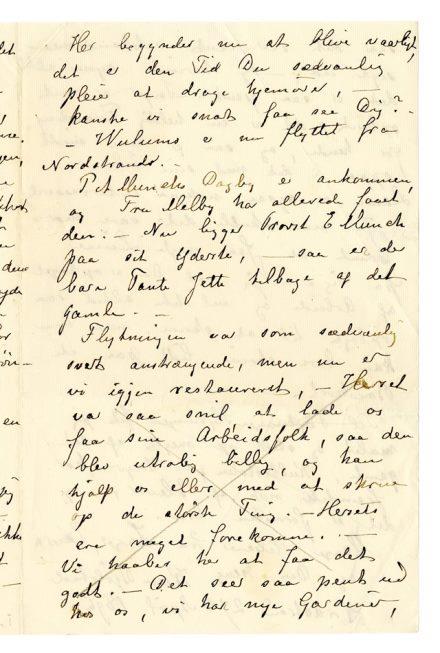 Her begynder nu at blive vaarligt,
det er den Tid Du sædvanlig
pleier at drage hjemover, —
kanske vi snart faa see Dig? -
- Wulums e nu flyttet fra
Nordstrand. -
P. A. Munchs Dagbog e ankommen,
og Fru Melby har allerede faaet
den. - Nu ligger Provst E Munch
paa sit Yderste, — saa er der
bare Tante Jette tilbage af det
gamle. -
Flytningen var som sædvanlig
svært anstrængende, men nu er
vi igjen restaurerst, - Herset
var saa snil at lade os
faa sine Arbeidsfolk, saa den
blev utrolig billig, og han
hjalp os eller med at skrue
op de største Ting. - Hersets
ere meget forekomne. -
Vi haaber her at faa det
godt. - Det seer saa pent ud
hos os, vi har nye Gardener,